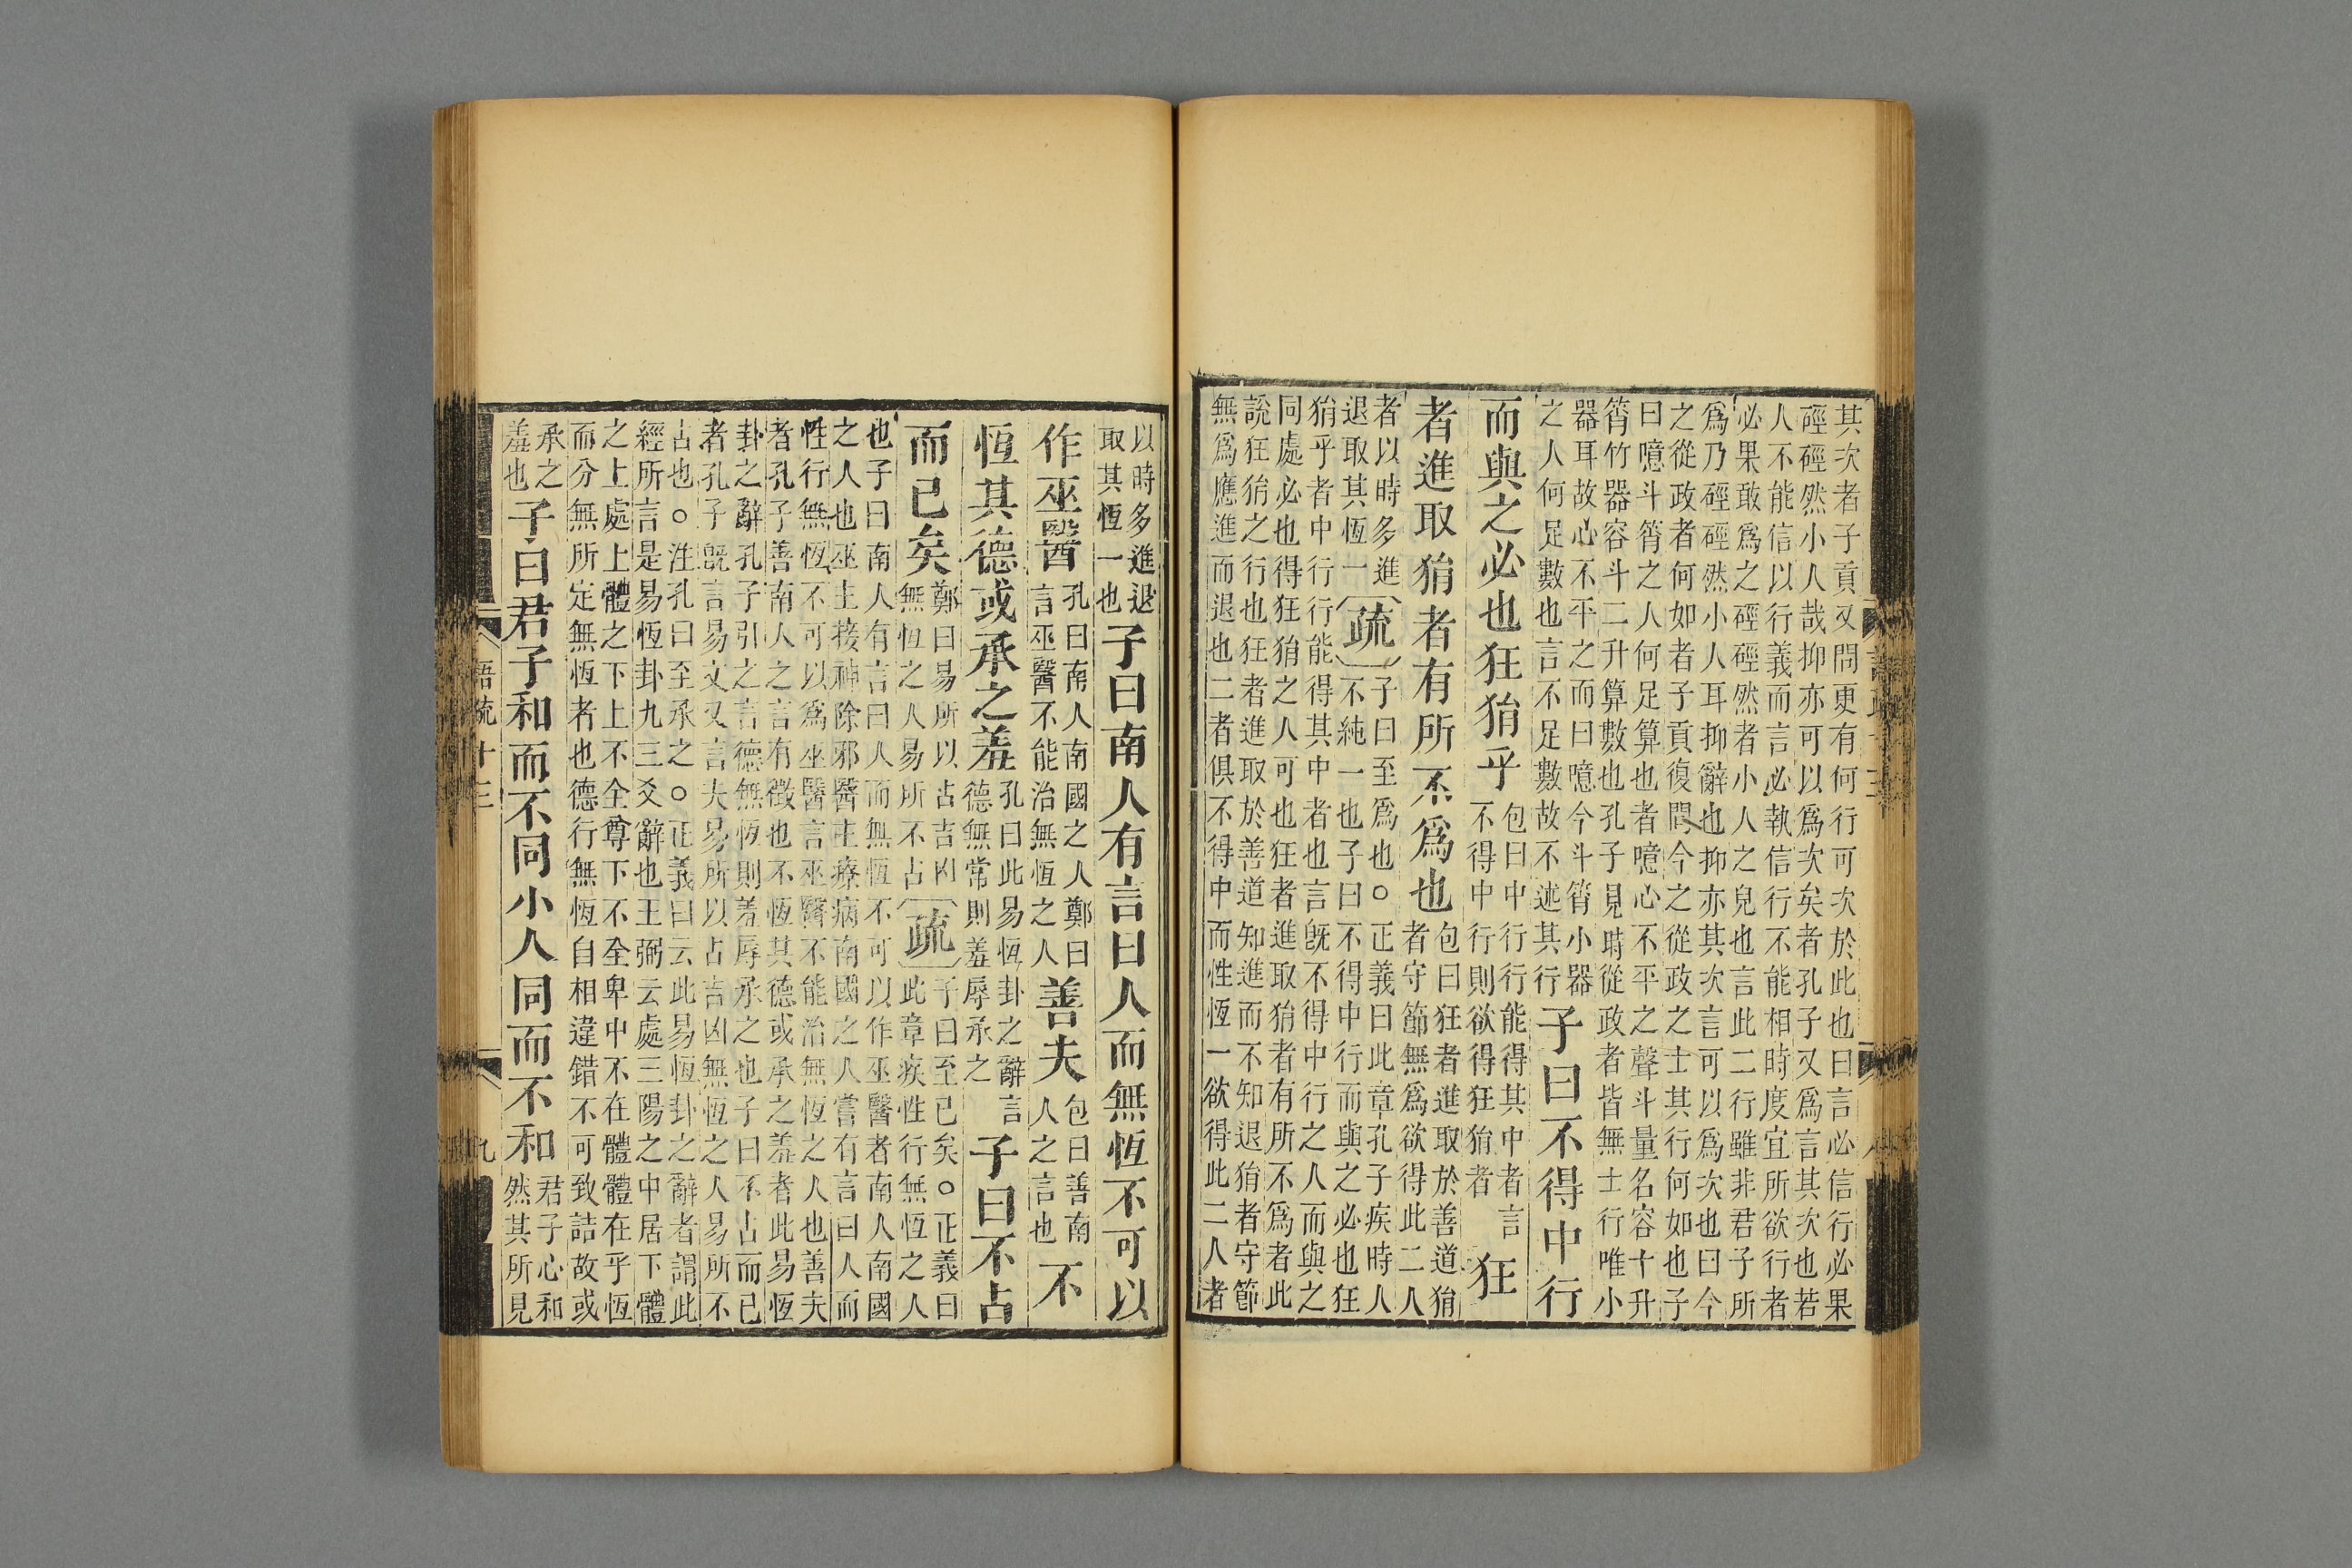 其次者子貢又問更有何行可次於此也曰言必信行必果
硜硜然小人哉抑亦可以爲次矣者孔子又爲言其次也若
人不能信以行義而言必執信行不能相時度宜所欲行者
必果敢爲之硜硜然者小人之皃也言此二行雖非君子所
爲乃硜硜然小人耳抑辭也抑亦其次言可以爲次也曰今
之從政者何如者子貢復問今之從政之士其行何如也子
曰噫斗筲之人何足算也者噫心不平之聲斗量名容十升
筲竹器容斗二升算數也孔子見時從政者皆無士行唯小
器耳故心不平之而曰噫今斗筲小器
之人何足數也言不足數故不述其行
子曰不得中行
而與之必也狂狷乎
包曰中行行能得其中者言
不得中行則欲得狂狷者
狂
者進取狷者有所不爲也
包曰狂者進取於善道狷
者守節無爲欲得此二人
者以時多進
退取其恆一
疏
子曰至爲也○正義曰此章孔子疾時人
不純一也子曰不得中行而與之必也狂
狷乎者中行行能得其中者也言旣不得中行之人而與之
同處必也得狂狷之人可也狂者進取狷者有所不爲者此
說狂狷之行也狂者進取於善道知進而不知退狷者守節
無爲應進而退也二者俱不得中而性恆一欲得此二人者
以時多進退
取其恆一也
子曰南人有言曰人而無恆不可以
作巫醫
孔曰南人南國之人鄭曰
言巫醫不能治無恆之人
善夫
包曰善南
人之言也
不
恆其德或承之羞
孔曰此易恆卦之辭言
德無常則羞辱承之
子曰不占
而已矣
鄭曰易所以占吉凶
無恆之人易所不占
疏
子曰至已矣○正義曰
此章疾性行無恆之人
也子曰南人有言曰人而無恆不可以作巫醫者南人南國
之人也巫主接神除邪醫主療病南國之人嘗有言曰人而
性行無恆不可以爲巫醫言巫醫不能治無恆之人也善夫
者孔子善南人之言有徵也不恆其德或承之羞者此易恆
卦之辭孔子引之言德無恆則羞辱承之也子曰不占而已
者孔子旣言易文又言夫易所以占吉凶無恆之人易所不
占也○注孔曰至承之○正義曰云此易恆卦之辭者謂此
經所言是易恆卦九三爻辭也王弼云處三陽之中居下體
之上處上體之下上不全尊下不全卑中不在體體在乎恆
而分無所定無恆者也德行無恆自相違錯不可致詰故或
承之
羞也
子曰君子和而不同小人同而不和
君子心和
然其所見
語疏十三
九